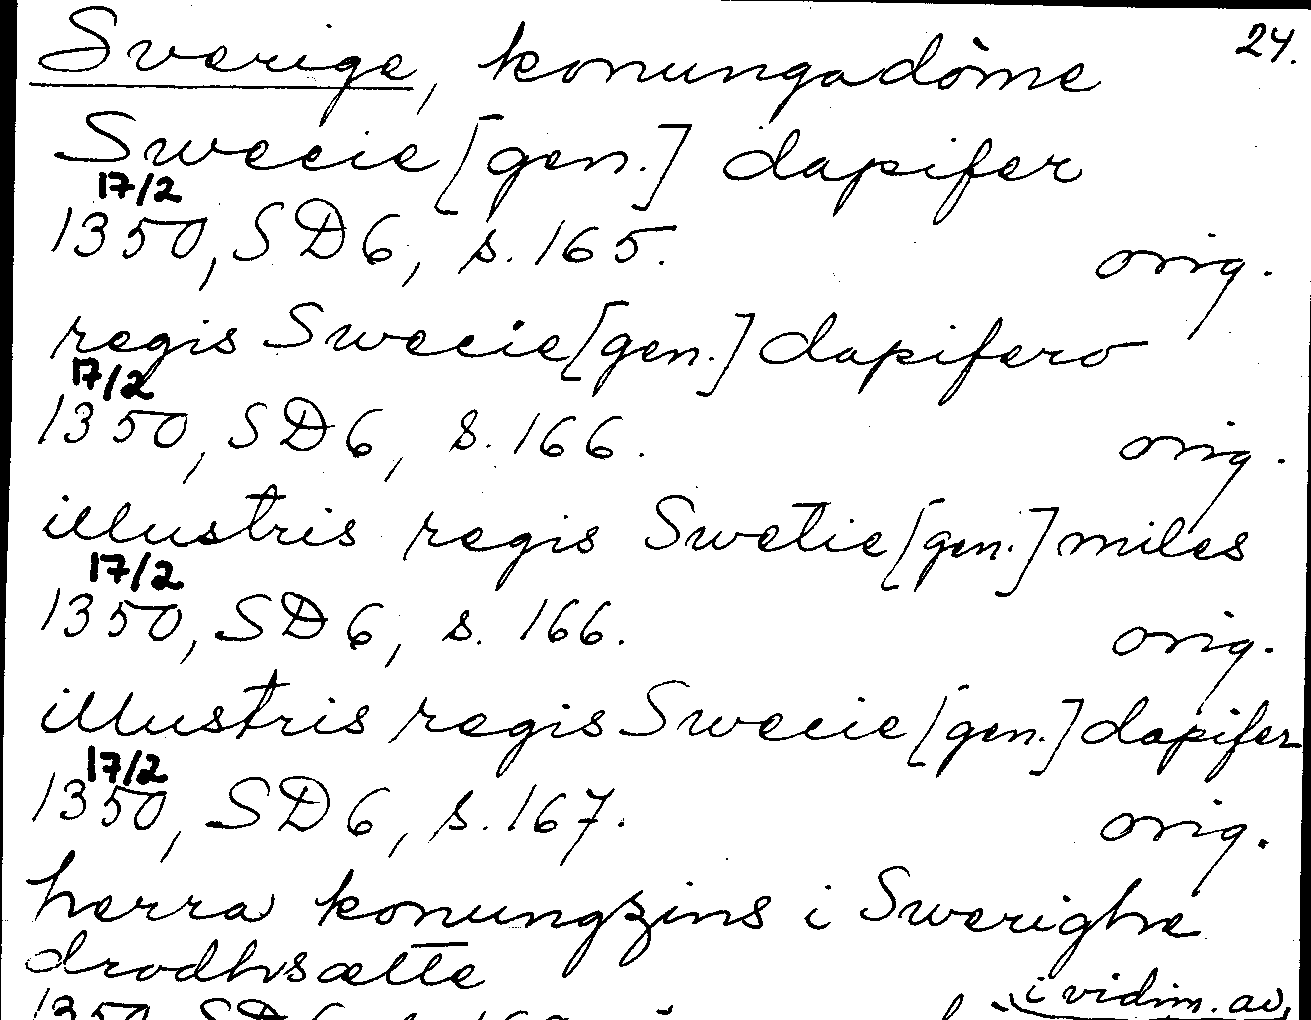 24.
Sverige, konungadöme
Swecie [gen.] dapifer
17/2
1350, SD6, s. 165.
orig.
regis Swecie [gen.] dapifero
17/2
1350, SD6, s. 166.
orig.
illustris regis Swetie [gen.] miles
17/2
1350, SD6, s. 166.
orig.
illustris regis Swecie [gen.] dapifer
17/2
1350, SD6, s. 167.
orig.
herra konungzins i Swerighe
drodhsætte
i vidim. av
1350, SD6, s.